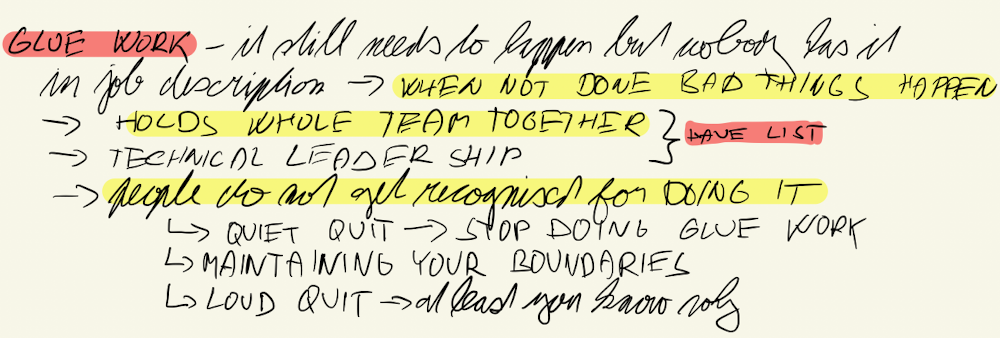 GLUE WORK - it still needs to happen but nobody has it
in job description → WHEN NOT DONE BAD THINGS HAPPEN
→ HOLDS WHOLE TEAM TOGETHER } HAVE LIST
→ TECHNICAL LEADERSHIP
→ people do not get recognised for DOING IT
↳ QUIET QUIT → STOP DOING GLUE WORK
↳ MAINTAINING YOUR BOUNDARIES
↳ LOUD QUIT → at least you know why